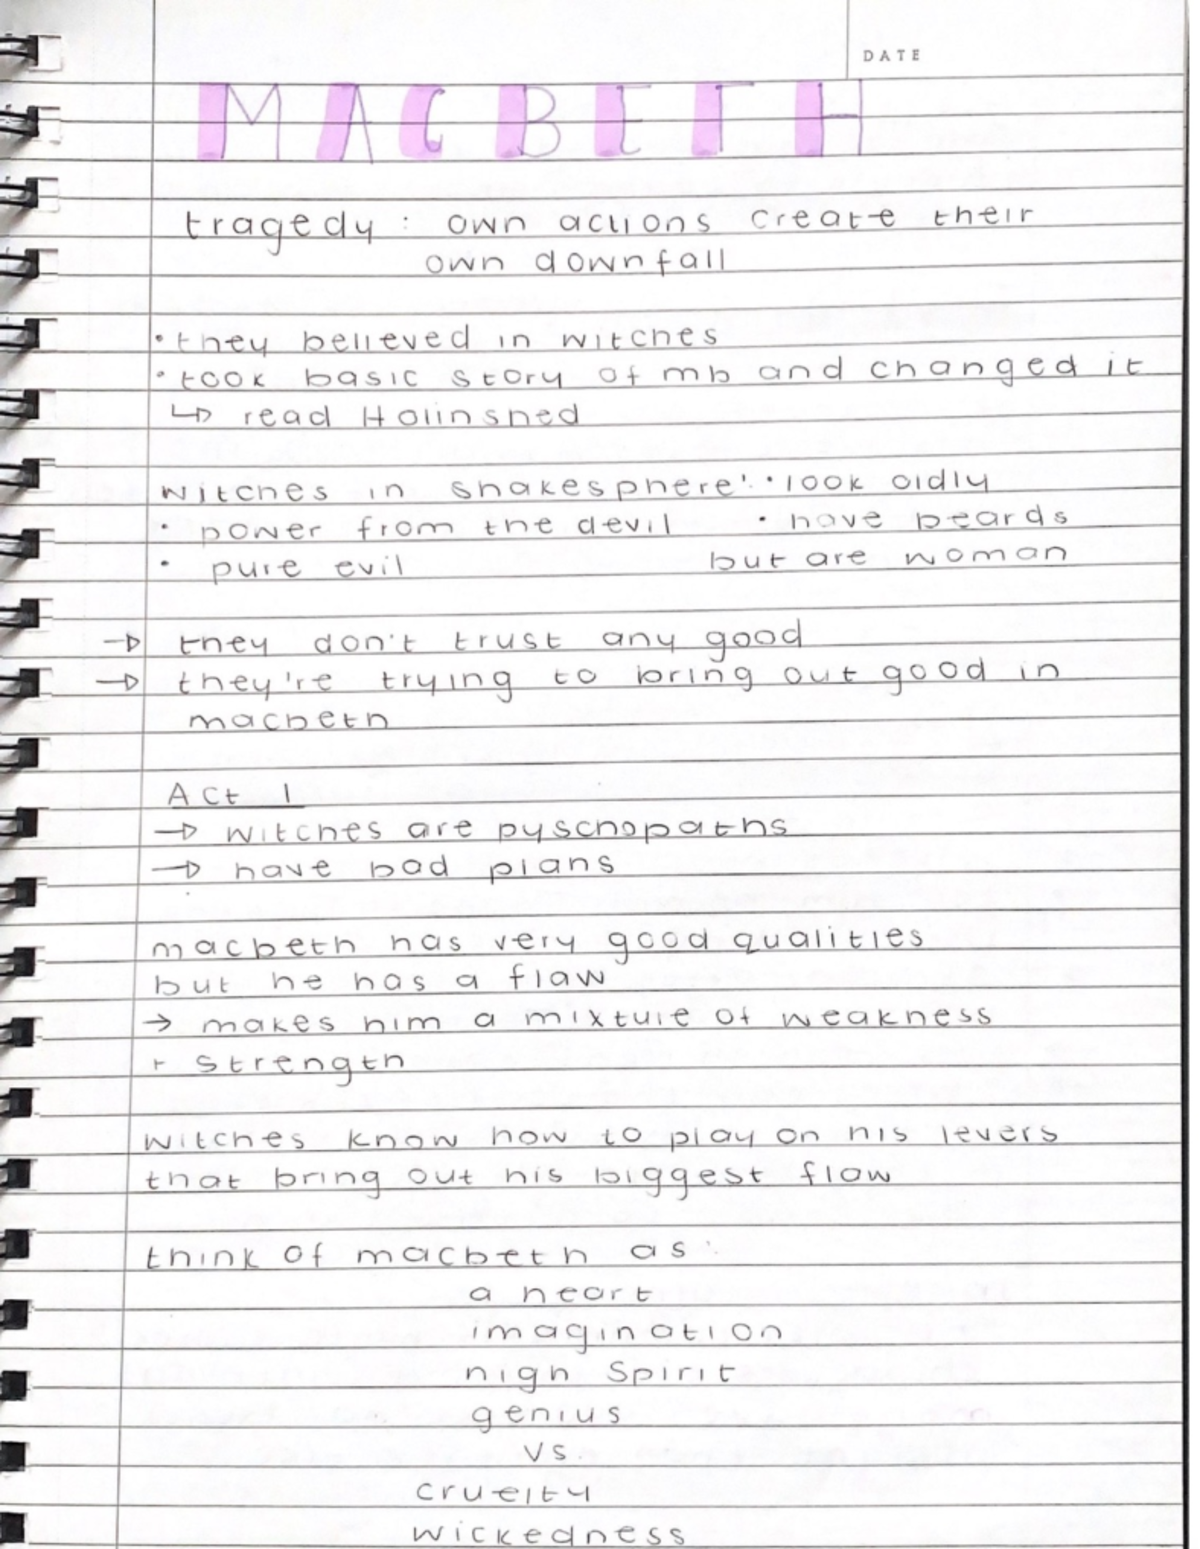 DATE
MACBETH
tragedy : own actions create their
own downfall
• they believed in witches
• took basic story of mb and changed it
↳ read Holinshed
witches in shakesphere: • look oldly
• power from the devil • have beards
• pure evil but are woman
→ they don't trust any good
→ they're trying to bring out good in
macbeth
Act 1
→ witches are pyschopaths
→ have bad plans
macbeth has very good qualities
but he has a flaw
→ makes him a mixture of weakness
+ strength
witches know how to play on his levers
that bring out his biggest flaw
think of macbeth as:
a heart
imagination
high spirit
genius
vs.
cruelty
wickedness